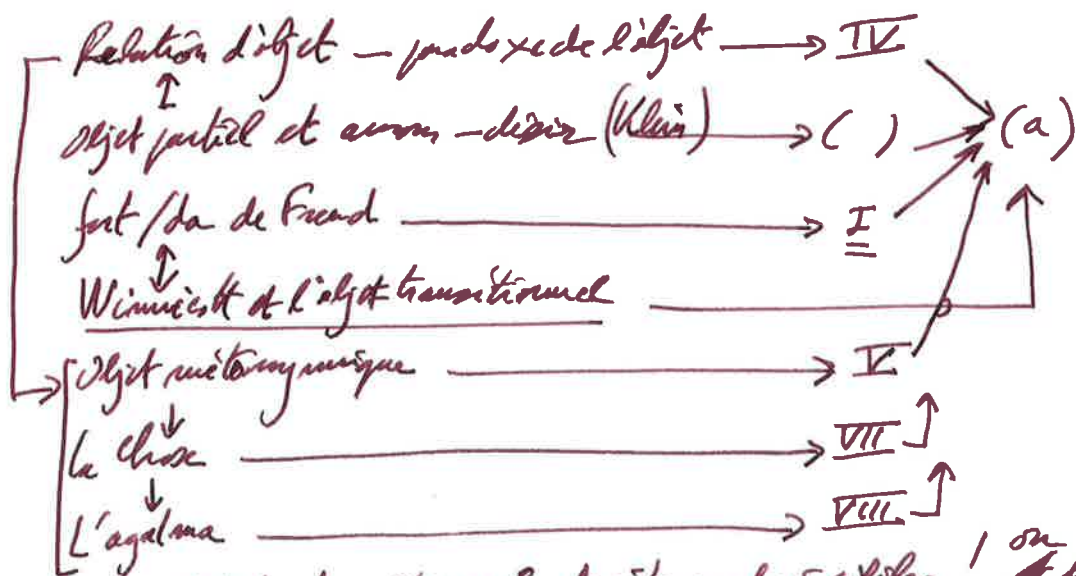 Relation d'objet — paradoxe de l'objet → IV
Objet partiel et amour - désir (Klein) → ( ) → (a)
fort/da de Freud → I
Winnicott et l'objet transitionnel
Objet métonymique → V
la Chose → VII
L'agalma → VIII
ou